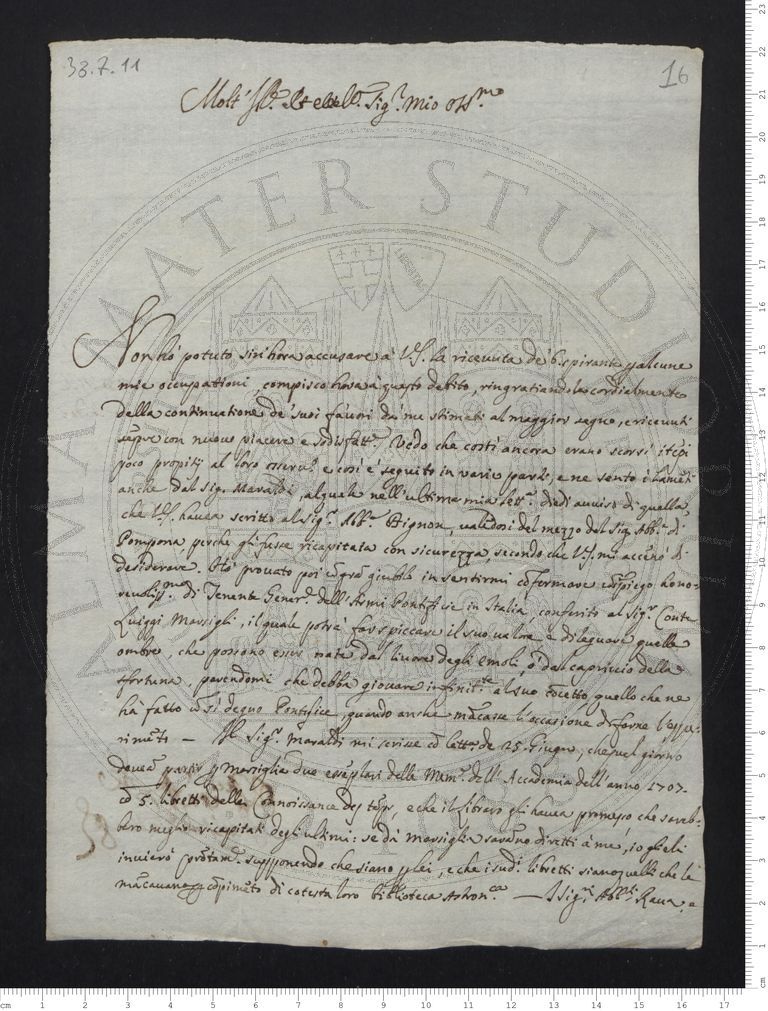 33.7.11
16
Molt' Ill.e et Sig.r mio Oss.mo
Non hò potuto sin' hora accusare à V.S. la ricevuta de 6 spirante p alcune
mie occupationi, compisco hora à questo debito, ringratiandola cordialmente
della continuatione de' suoi favori da me stimati al maggior segno, e ricevuti
sepre con nuovo piacere e sodisfatt.e Vedo che costi ancora erano scorsi i tepi
poco propitij al loro osserv.e e cosi è seguito in varie parti, e ne sento i lameti
anche dal Sig. Maraldi, al quale nell'ultima mia lett.a diedi avviso di quella,
che V.S. haveva scritto al Sig.r Abb.e Bignon, valedosi del mezzo del Sig. Abb.e di
Pompona perche gli fusse ricapitata con sicurezza, secondo che V.S. mi accenò di
desiderare. Hò provato poi gra giubilo in sentirmi cofermare l'impiego hono-
revoliss.mo di Tenente Gener.e dell'Armi Pontificie in Italia, conferito al Sig.r Conte
Luiggi Marsigli, il quale potrà far spiccare il suo valore, e dileguare quelle
ombre, che possono esser nate dal livore degli emoli, ò dal capriccio della
fortuna, parendomi che debba giovare infinit.te al suo cocetto quello che ne
hà fatto u si degno Pontefice, quando anche macasse l'occasione di farne l'espe-
rimeti — Il Sig.r Maraldi mi scrisse co lett.a de 25. Giugno, che quel giorno
doveva partir p Marsiglia due eseplari delle Mem.e dell'Accademia dell'anno 1707.
co 5. libretti della Connoissance des teps, e che il Libraro gli haveva promesso, che sareb-
bero meglio ricapitati degli ultimi: se dà Marsiglia sarano diretti à me, io glieli
invierò protam.e supponendo che siano p lei, e che i sud.i libretti siano quelli che le
macavano p copimeto di cotesta loro Biblioteca Astron.ca — I Sig.ri Abb.i Rava, e